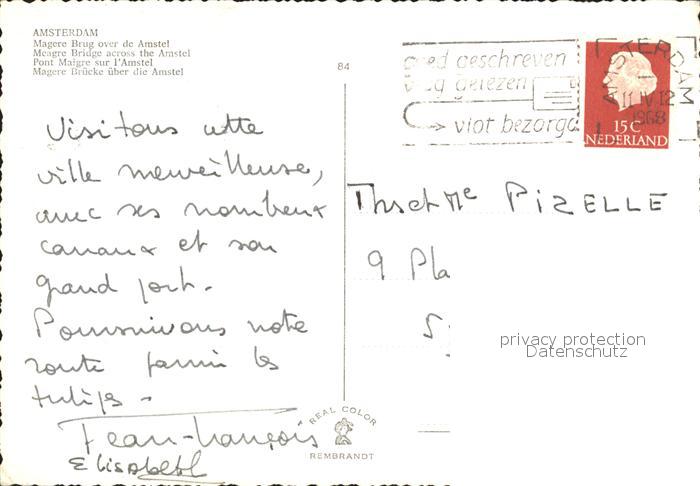 AMSTERDAM
Magere Brug over de Amstel
Meagre Bridge across the Amstel
Pont Maigre sur l'Amstel
Magere Brücke über die Amstel
84
goed geschreven
vlug gelezen
vlot bezorgd
AMSTERDAM
11 IV 12
1968
15 C
NEDERLAND
Visitons cette
ville merveilleuse,
avec ses nombreux
canaux et son
grand port.
Poursuivons notre
route parmi les
tulipes.
Jean-François
Elisabeth
Mr et Me PIZELLE
9 Pla
privacy protection
Datenschutz
REAL COLOR
REMBRANDT